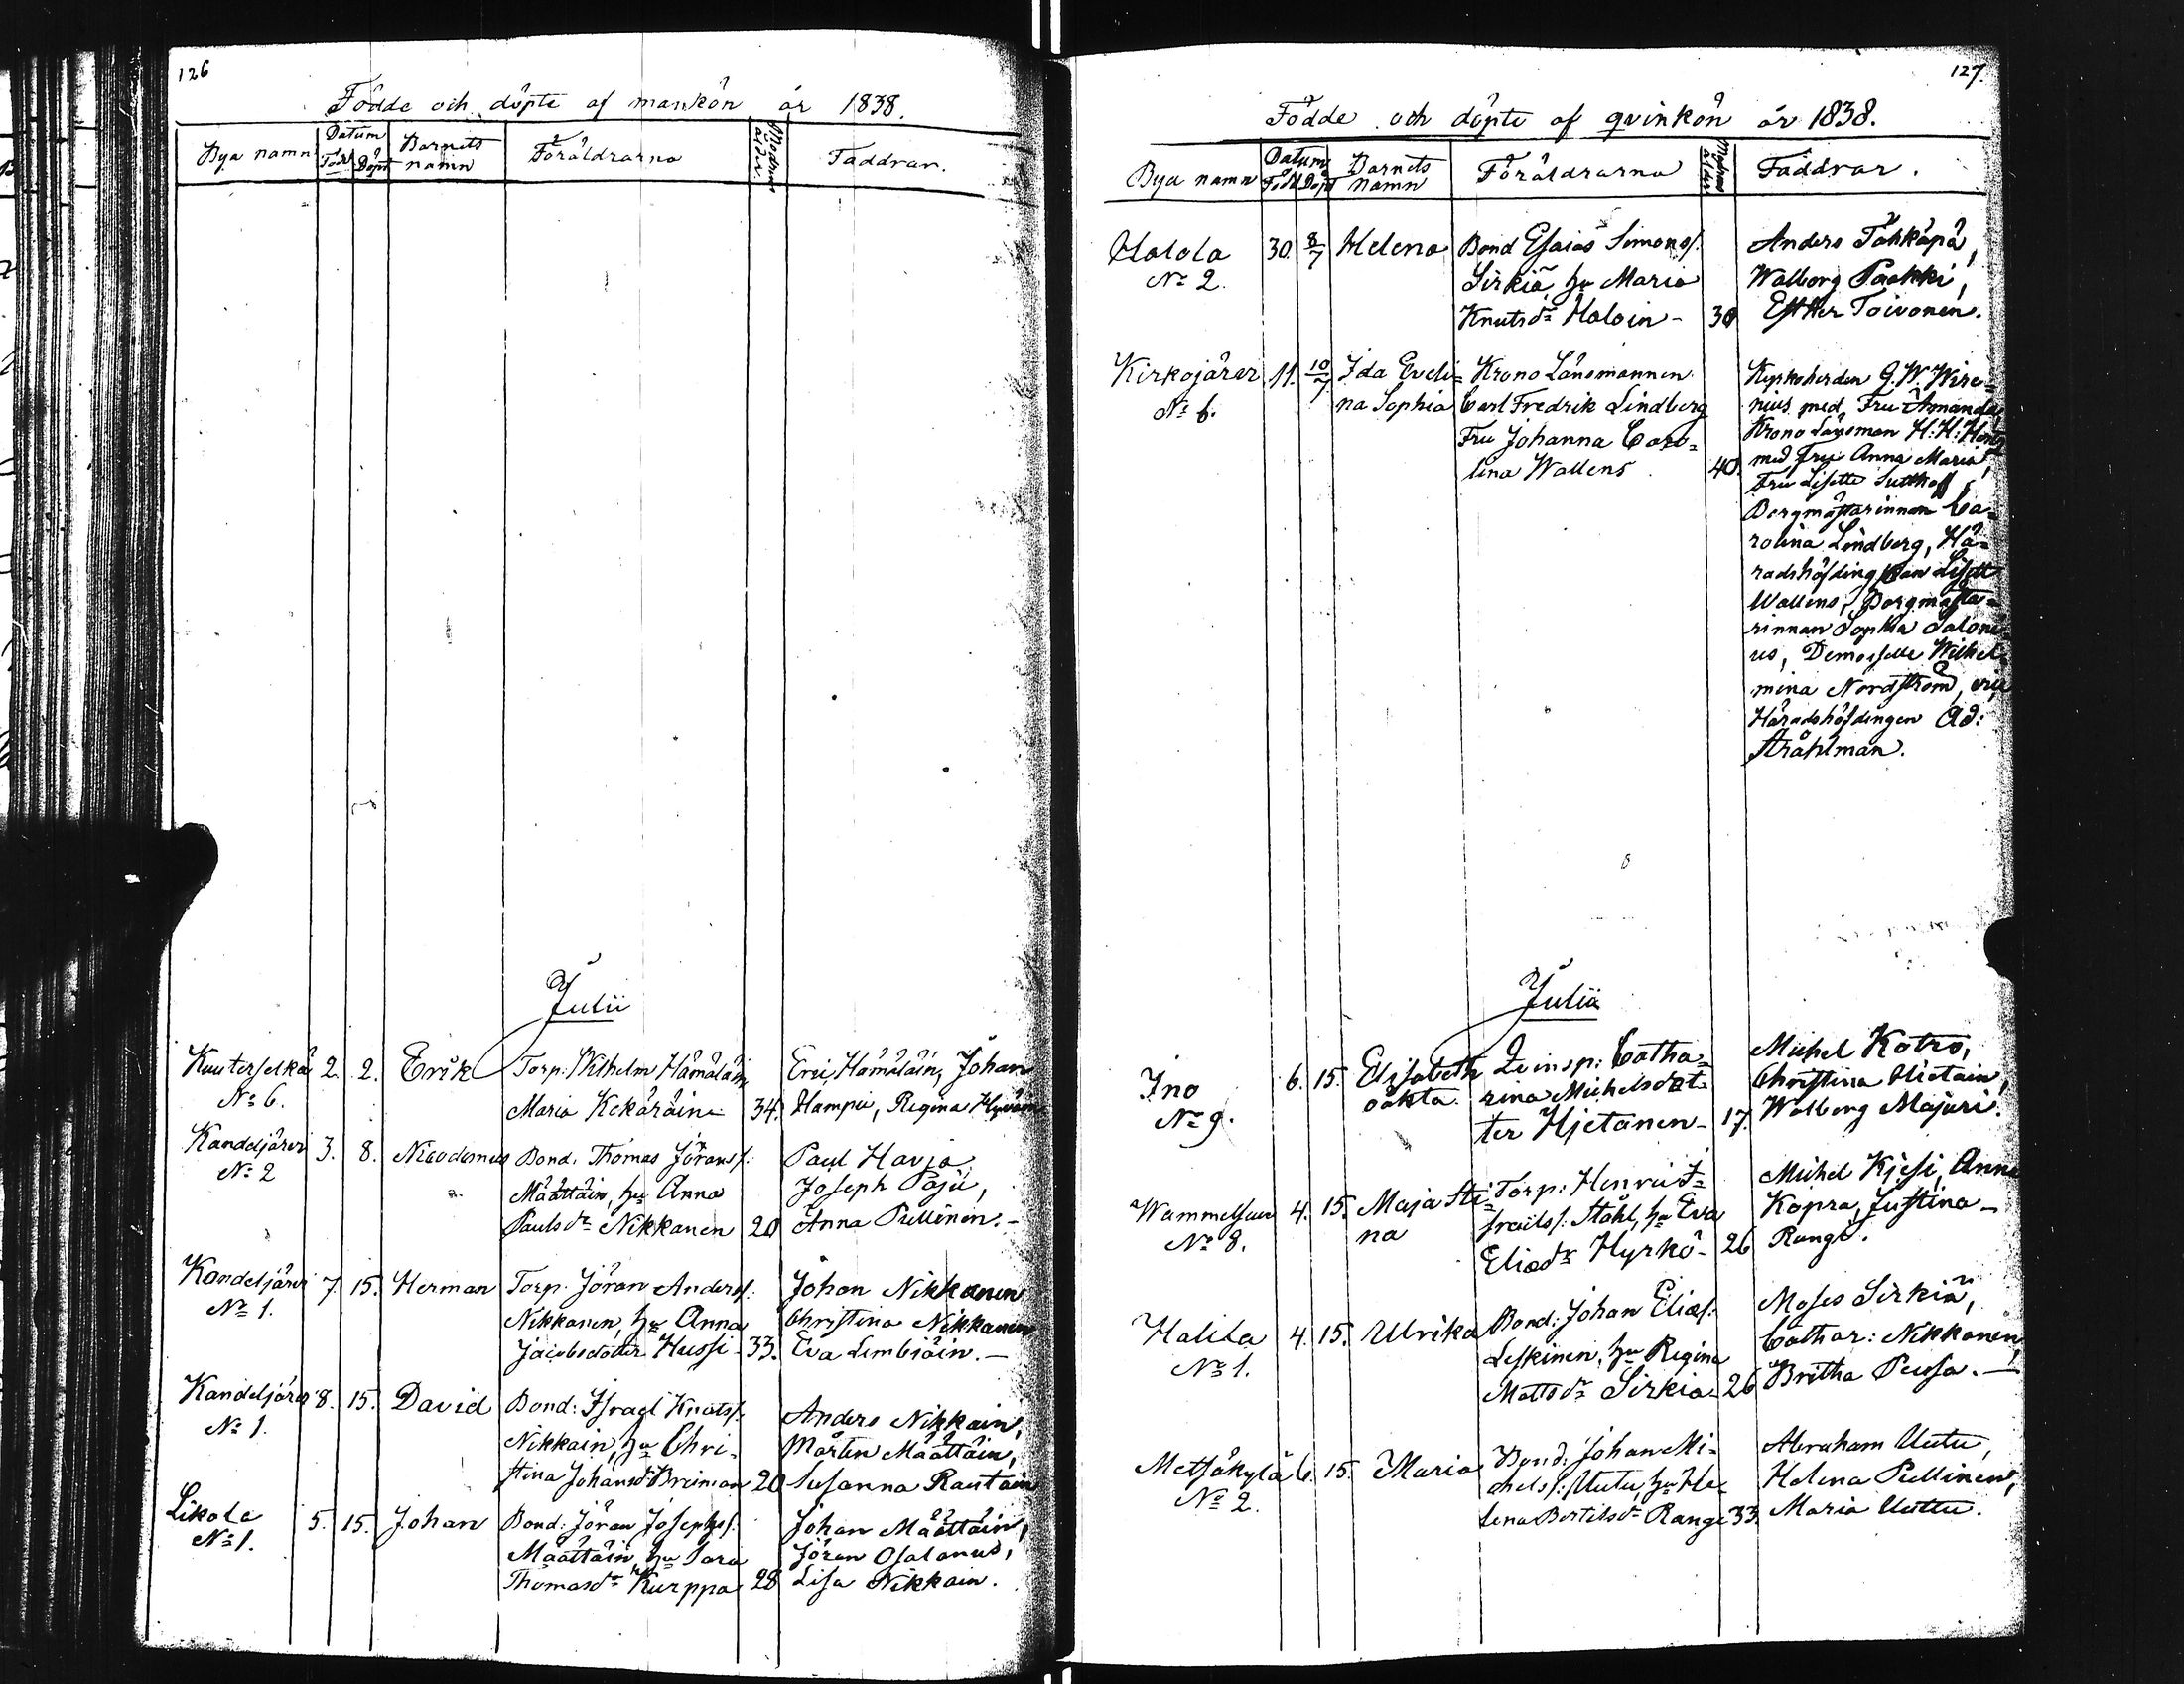 126
Födde och döpte af mankön år 1838.
Bya namn
Datum
Född
Döpt
Barnets
namn
Föräldrarna
Modrens
ålder
Faddrar.
Julii
Kuuterselkä
No 6.
2.
2.
Erik
Torp: Wilhelm Hämäläin
Maria Kekäräin
34.
Eric Hämäläin, Johan
Hampu, Regina
Kandeljärvi
No 2
3.
8.
Nicodemus
Bond. Thomas Jöranss:
Määttäin, hu Anna
Paulsdr Nikkanen
20
Paul Havja
Joseph Paju,
Anna Pullinen.-
Kandeljärvi
No 1.
7.
15.
Herman
Torp. Jöran Anderss:
Nikkanen, hu Anna
Jacobsdotter Hussi
33.
Johan Nikkanen
Christina Nikkanen
Eva Lembiäin.-
Kandeljärvi
No 1.
8.
15.
David
Bond: Israel Knutss:
Nikkain, hu Chri-
stina Johansdr Breiman
20
Anders Nikkain,
Mårten Määttäin,
Susanna Rautain
Likola
No 1.
5.
15.
Johan
Bond: Jöran Josephss:
Määttäin, hu Sara
Thomasdr Kurppa
28
Johan Määttäin,
Jöran Osalanus,
Lisa Nikkain.
127.
Födde och döpte af qvinkön år 1838.
Bya namn
Datum
Född
Döpt
Barnets
namn
Föräldrarna
Modrens
ålder
Faddrar.
Halola
No 2.
30.
8/7
Helena
Bond Esaias Simonss:
Sirkiä, hu Maria
Knutsdr Haloin-
30
Anders Tähkäpä,
Walborg Paakki,
Esther Toivonen.
Kirkojärvi
No 6.
11.
10/7
Ida Eveli=
na Sophia
Krono Länsmannen
Carl Fredrik Lindberg
Fru Johanna Caro=
lina Wallens
40.
Kyrkoherden G. W. Wire=
nius med Fru Amanda,
Krono Länsman H: H:
med Fru Anna Maria,
Fru Lisette Sutthoff,
Borgmästarinnan Ca=
rolina Lindberg, Hä=
radshöfdingskan Lisett
Wallens, Borgmästa=
rinnan Sophia Saloni=
us, Demoiselle Wilhel=
mina Nordström,
Häradshöfdingen Ad:
Stråhlman.
Julii
Ino
No 9.
6.
15.
Elisabeth
oäkta
Qvinsp: Catha=
rina Michelsdot=
ter Hjetanen-
17.
Michel Kotro,
Christina Hietain,
Walborg Majuri.
Wammelsuu
No 8.
4.
15.
Maja Sti=
na
Torp: Henric I=
sraelss: Ståhl, hu Eva
Eliædr Hyrkö-
26
Michel Kjesi, Anna
Kopra, Justina-
Range.
Halila
No 1.
4.
15.
Ulrika
Bond: Johan Eliæs:
Leskinen, hu Regina
Mattsdr Sirkiä-
26
Moses Sirkiä,
Cathar: Nikkanen,
Britha Peussa.-
Metsäkylä
No 2.
6.
15.
Maria
Bond: Johan Mi=
chelss: Uutu, hu He=
lena Bertilsdr Range
33.
Abraham Uutu,
Helena Pullinen,
Maria Uuttu.